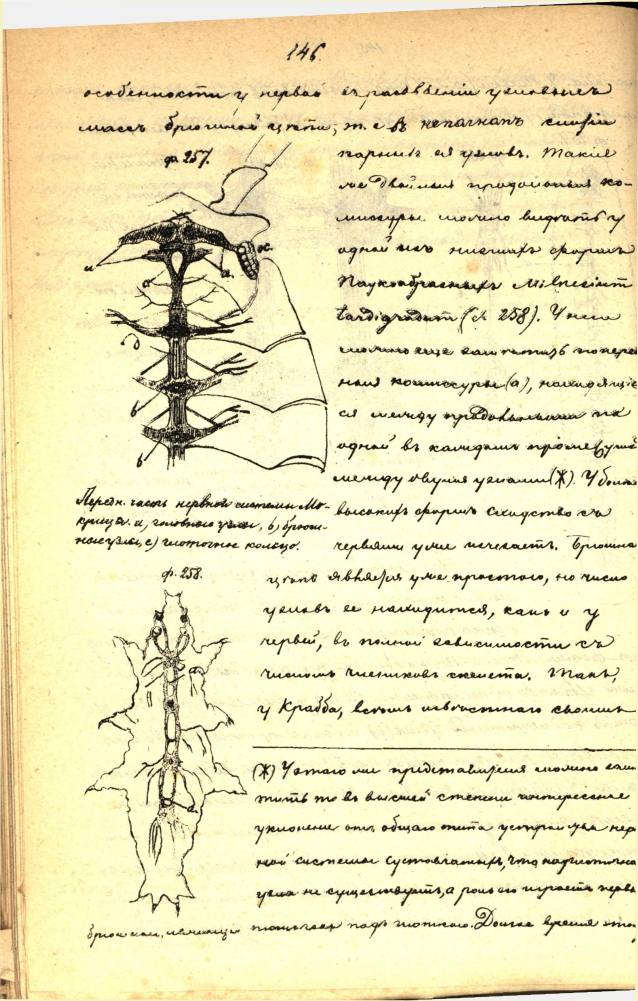 146.
особенности у первой въ развѣтвленіи узловыхъ
массъ брюшной цѣпи, т. е. въ
парныхъ ея узловъ. Такія
же двойныя продольныя ко-
миссуры можно видѣть у
одной изъ низшихъ формъ
Паукообразныхъ Milnesium
tardigradum (ф. 258). У него
можно еще замѣтить попереч
ныя комиссуры (а), находящіе
ся между продольными по
одной въ каждомъ промежут
между двумя узлами (Ж). У болѣе
высокихъ формъ сходство съ
червями уже исчезаетъ. Брюшна
цѣпь является уже простою, но число
узловъ ее находится, какъ и у
червей, въ полной зависимости съ
числомъ члениковъ скелета. Такъ,
у Крабба, всѣмъ извѣстнаго своимъ
ф. 257.
а
а
ос.
а
д
b
b
Передн. часть нервной системы Мо-
крицы. а, головные узлы, b) брюш-
ные узлы, с) глоточное кольцо.
ф. 258.
а
а
(Ж) У этого же представителя можно замѣ
тить то въ высшей степени интересное
уклоненіе отъ общаго типа устройства нер
ной системы суставчатыхъ, что надглоточнаго
узла не существуетъ, а роль его играетъ первы
брюшной, лежащій подъ глоткою. Долгое время это